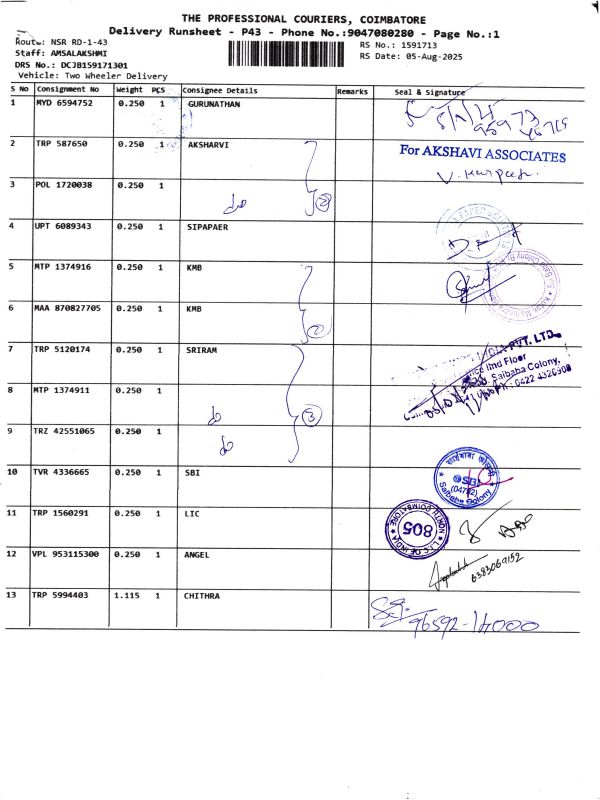 THE PROFESSIONAL COURIERS, COIMBATORE
Delivery Runsheet - P43 - Phone No.:9047080280 - Page No.:1
Route: NSR RD-1-43
RS No.: 1591713
Staff: AMSALAKSHMI
RS Date: 05-Aug-2025
DRS No.: DCJB159171301
Vehicle: Two Wheeler Delivery
S No Consignment No Weight PCS Consignee Details Remarks Seal & Signature
1 MYD 6594752 0.250 1 GURUNATHAN
2 TRP 587650 0.250 1 AKSHARVI
For AKSHAVI ASSOCIATES
3 POL 1720038 0.250 1 do 2
4 UPT 6089343 0.250 1 SIPAPAER
5 MTP 1374916 0.250 1 KMB
6 MAA 870827705 0.250 1 KMB 2
7 TRP 5120174 0.250 1 SRIRAM
PVT. LTD.
IInd Floor
Saibaba Colony,
Ph : 0422 4320900
8 MTP 1374911 0.250 1 do 3
9 TRZ 42551065 0.250 1 do
10 TVR 4336665 0.250 1 SBI
SBI
Saibaba Colony
11 TRP 1560291 0.250 1 LIC
L.I.C OF INDIA NORTH COIMBATORE
805
12 VPL 953115300 0.250 1 ANGEL
6383069152
13 TRP 5994403 1.115 1 CHITHRA
96592-14000